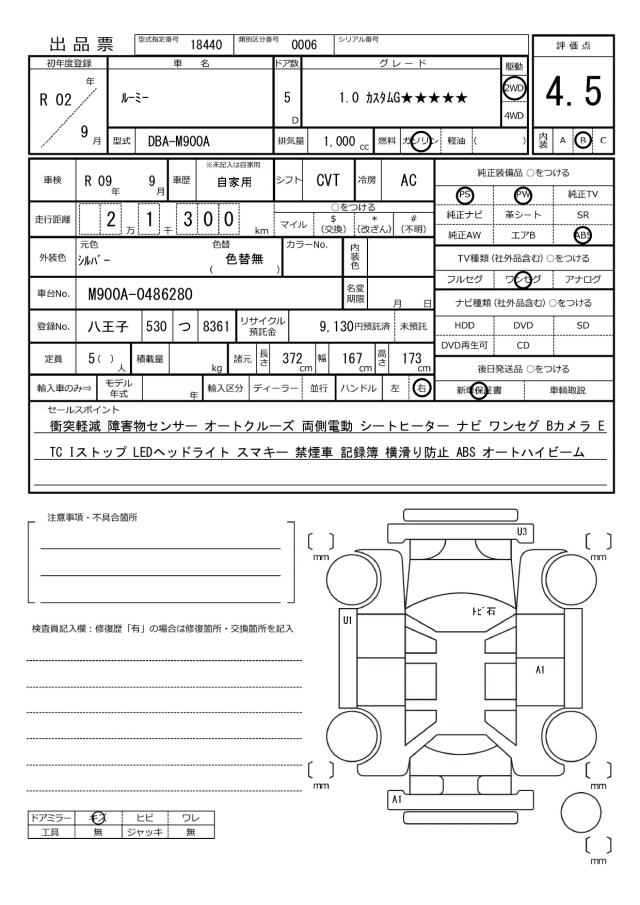 出品票 型式指定番号 18440 類別区分番号 0006 シリアル番号
評価点
4.5
内装 A B C
初年度登録 車名 ドア数 グレード 駆動
R 02 年 9 月
ルーミー
5 D
1.0 カスタムG★★★★★
2WD
4WD
型式 DBA-M900A 排気量 1,000 cc 燃料 ガソリン 軽油 ( )
車検 R 09 年 9 月 車歴 ※未記入は自家用 自家用 シフト CVT 冷房 AC
走行距離 2 万 1 千 3 0 0 km
○をつける
マイル $ (交換) * (改ざん) # (不明)
外装色 元色 シルバー 色替 ( 色替無 ) カラーNo. 内装色
車台No. M900A-0486280 名変期限 月 日
登録No. 八王子 530 つ 8361 リサイクル預託金 9,130円預託済 未預託
定員 5 ( ) 人 積載量 kg 諸元 長さ 372 cm 幅 167 cm 高さ 173 cm
輸入車のみ⇒ モデル年式 年 輸入区分 ディーラー 並行 ハンドル 左 右
純正装備品 ○をつける
PS PW 純正TV
純正ナビ 革シート SR
純正AW エアB ABS
TV種類 (社外品含む) ○をつける
フルセグ ワンセグ アナログ
ナビ種類 (社外品含む) ○をつける
HDD DVD SD
DVD再生可 CD
後日発送品 ○をつける
新車保証書 車輌取説
セールスポイント
衝突軽減 障害物センサー オートクルーズ 両側電動 シートヒーター ナビ ワンセグ Bカメラ E
TC Iストップ LEDヘッドライト スマキー 禁煙車 記録簿 横滑り防止 ABS オートハイビーム
注意事項・不具合箇所
検査員記入欄：修復歴「有」の場合は修復箇所・交換箇所を記入
ドアミラー キズ ヒビ ワレ
工具 無 ジャッキ 無
U3
〔 〕 mm
〔 〕 mm
トビ石
U1
A1
〔 〕 mm
〔 〕 mm
A1
〔 〕 mm